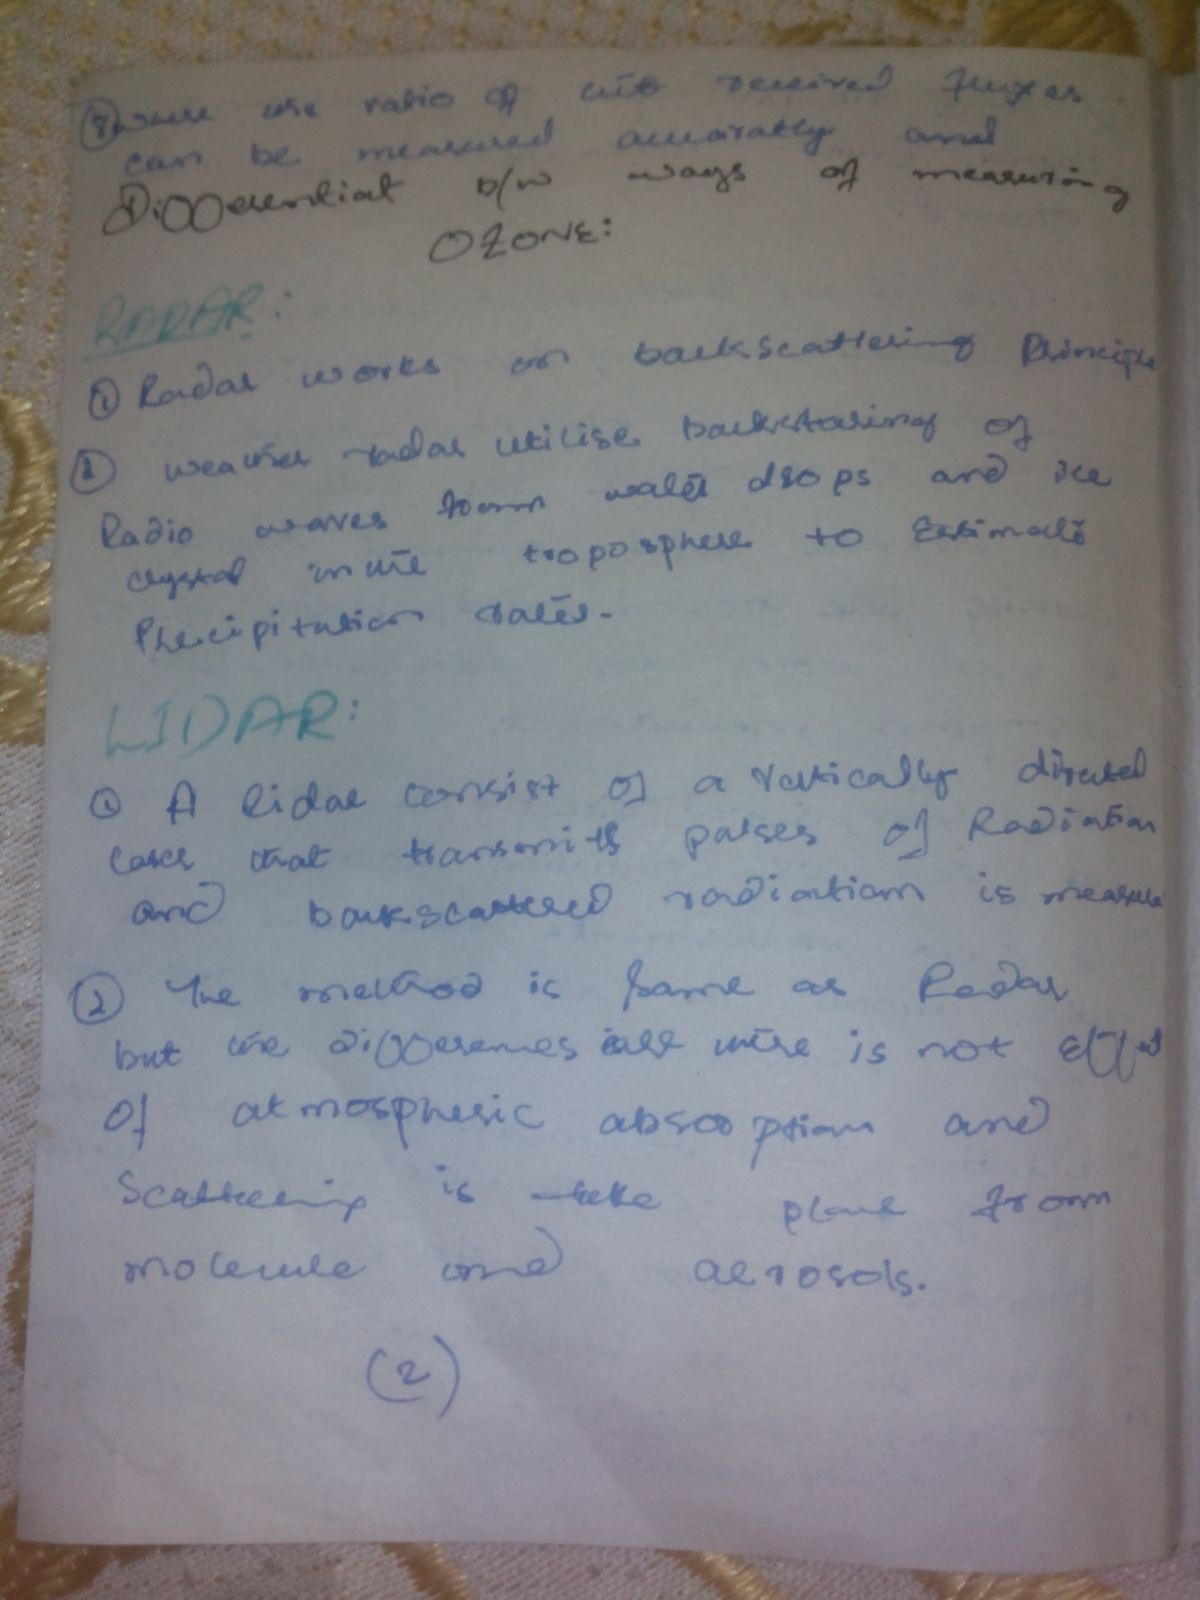 use ratio of received fluxes
can be measured and
Differential b/w ways of measuring
OZONE:
RADAR:
① Radar works on backscattering Principle
② radar utilise of
Radio waves from water drops and ice
crystal in the troposphere to Estimate
Precipitation rates.
LIDAR:
① A lidar consist of a vertically directed
laser that transmits pulses of Radiation
and backscattered radiation is measure
② The method is same as Radar
but the is not
of atmospheric absorption and
Scattering is take place from
molecule and aerosols.
(2)